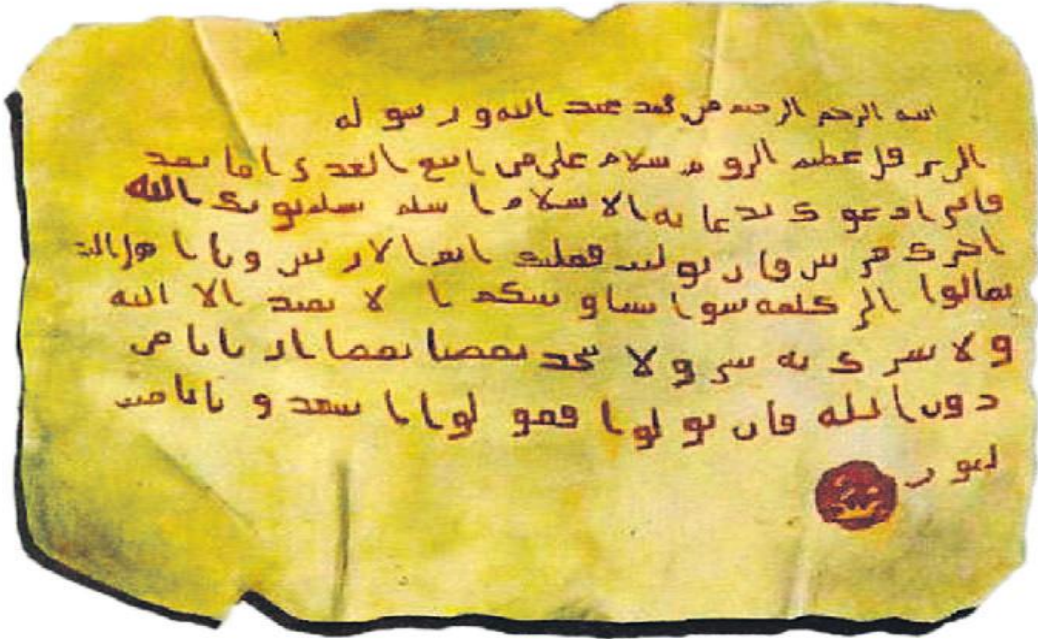 الرحمن الرحيم من محمد عبد الله و رسو له
هرقل عظيم الروم سلام على من اتبع الهدى اما بعد
فانى ادعوك بدعاية الاسلام اسلم تسلم يوتك الله
اجرك مرتين فان توليت فعليك اثم الاريسين ويا اهل
تعالوا الى كلمة سوا بيننا وبينكم ا لا نعبد الا الله
ولا نشرك به شى ولا يتخذ بعضنا بعضا اربابا من
دون الله فان تولوا فقولوا اشهدو بانا مسـ
لمون